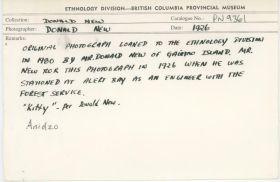 ETHNOLOGY DIVISION—BRITISH COLUMBIA PROVINCIAL MUSEUM
Collection: DONALD NEW Catalogue No.: PN 9361
Photographer: DONALD NEW Date: 1926
Remarks:
ORIGINAL PHOTOGRAPH LOANED TO THE ETHNOLOGY DIVISION
IN 1980 BY MR. DONALD NEW OF GALIANO ISLAND. MR.
NEW TOOK THIS PHOTOGRAPH IN 1926 WHEN HE WAS
STATIONED AT ALERT BAY AS AN ENGINEER WITH THE
FOREST SERVICE.
"Kitty" - per Donald New.
Anidzo